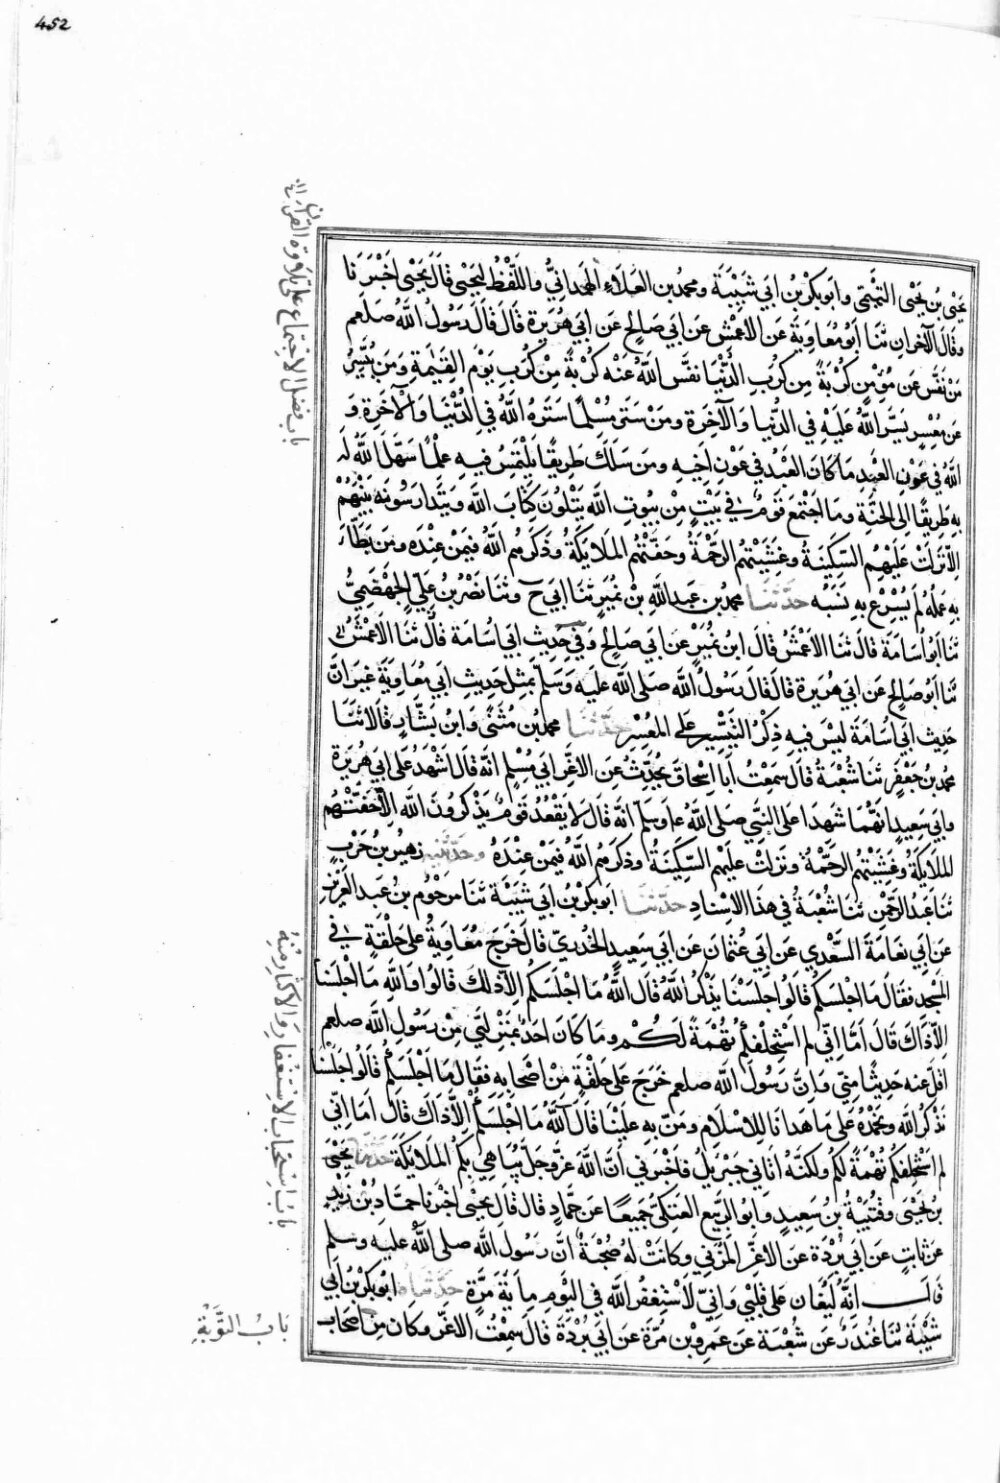 452
باب فضل الاجتماع على تلاوة القرآن
يحيى بن يحيى التميمي وابو بكر بن ابي شيبة ومحمد بن العلاء الهمداني واللفظ ليحيى قال يحيى اخبرنا
وقال الآخران ثنا ابو معاوية عن الاعمش عن ابي صالح عن ابي هريرة قال قال رسول الله صلعم
من نفس عن مؤمن كربة من كرب الدنيا نفس الله عنه كربة من كرب يوم القيمة ومن يسر
عن معسر يسر الله عليه في الدنيا والآخرة ومن ستر مسلما ستره الله في الدنيا والآخرة و
الله في عون العبد ما كان العبد في عون اخيه ومن سلك طريقا يلتمس فيه علما سهل الله له
به طريقا الى الجنة وما اجتمع قوم في بيت من بيوت الله يتلون كتاب الله ويتدارسونه بينهم
الا نزلت عليهم السكينة وغشيتهم الرحمة وحفتهم الملايكة وذكرهم الله فيمن عنده ومن بطأ
به عمله لم يسرع به نسبه حدثنا محمد بن عبد الله بن نمير ثنا ابي ح وثنا نصر بن علي الجهضمي
ثنا ابو اسامة قال ثنا الاعمش قال ابن نمير عن ابي صالح وفي حديث ابي اسامة قال ثنا الاعمش
ثنا ابو صالح عن ابي هريرة قال قال رسول الله صلى الله عليه وسلم بمثل حديث ابي معاوية غير ان
حديث ابي اسامة ليس فيه ذكر التيسير على المعسر حدثنا محمد بن مثنى وابن بشار قالا ثنا
محمد بن جعفر ثنا شعبة قال سمعت ابا اسحاق يحدث عن الاغر ابي مسلم انه قال اشهد على ابي هريرة
وابي سعيد انهما شهدا على النبي صلى الله عليه وسلم انه قال لا يقعد قوم يذكرون الله الا حفتهم
الملايكة وغشيتهم الرحمة ونزلت عليهم السكينة وذكرهم الله فيمن عنده وحدثنيه زهير بن حرب
ثنا عبد الرحمن ثنا شعبة في هذا الاسناد حدثنا ابو بكر بن ابي شيبة ثنا مرحوم بن عبد العزيز
عن ابي نعامة السعدي عن ابي عثمان عن ابي سعيد الخدري قال خرج معاوية على حلقة في
المسجد فقال ما اجلسكم قالوا جلسنا نذكر الله قال الله ما اجلسكم الا ذلك قالوا والله ما اجلسنا
الا ذاك قال اما اني لم استحلفكم تهمة لكم وما كان احد بمنزلتي من رسول الله صلعم
اقل عنه حديثا مني وان رسول الله صلعم خرج على حلقة من اصحابه فقال ما اجلسكم قالوا جلسنا
نذكر الله ونحمده على ما هدانا للاسلام ومن به علينا قال آلله ما اجلسكم الا ذاك قال اما اني
لم استحلفكم تهمة لكم ولكنه اتاني جبريل فاخبرني ان الله عز وجل يباهي بكم الملايكة حدثنا يحيى
بن يحيى وقتيبة بن سعيد وابو الربيع العتكي جميعا عن حماد قال قال يحيى اخبرنا حماد بن زيد
عن ثابت عن ابي بردة عن الاغر المزني وكانت له صحبة ان رسول الله صلى الله عليه وسلم
قال انه ليغان على قلبي واني لاستغفر الله في اليوم ماية مرة حدثناه ابو بكر بن ابي
شيبة ثنا غندر عن شعبة عن عمرو بن مرة عن ابي بردة قال سمعت الاغر وكان من اصحاب
باب استحباب الاستغفار والاكثار منه
باب التوبة